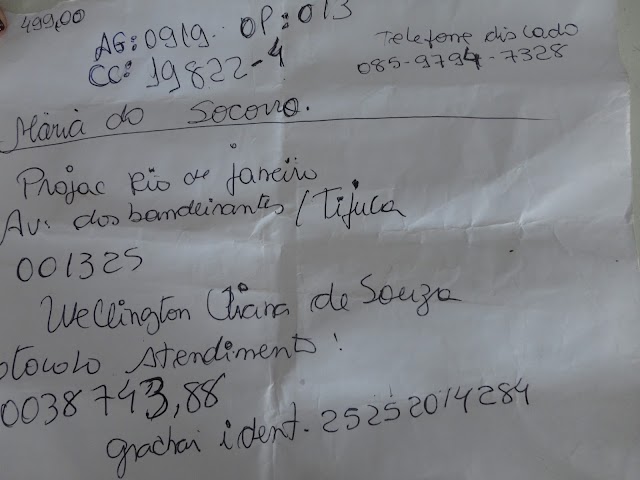 499,00
AG:0919 OP:013
CC: 19822-4
Telefone discado
085-9794-7328
Maria do Socorro.
Projac Rio de janeiro
Av. dos bandeirantes / Tijuca
001325
Wellington de Souza
otocolo Atendimento:
0038743,88
ident. 25252014284